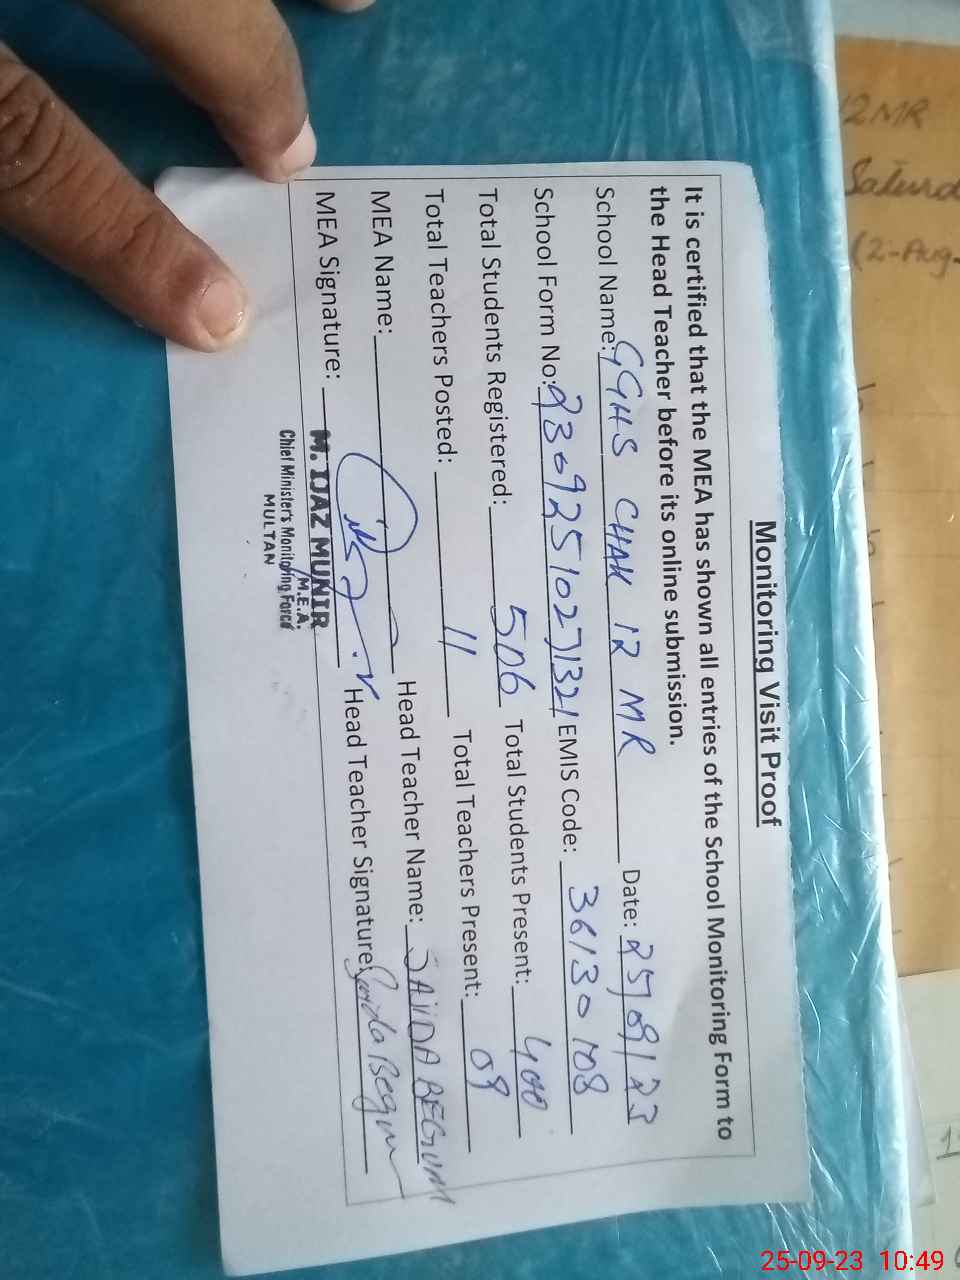 Monitoring Visit Proof
It is certified that the MEA has shown all entries of the School Monitoring Form to
the Head Teacher before its online submission.
School Name: GGHS CHAK 12 MR Date: 25/09/23
School Form No: 23092510271321 EMIS Code: 36130108
Total Students Registered: 506 Total Students Present: 400
Total Teachers Posted: 11 Total Teachers Present: 09
MEA Name: Head Teacher Name: SAIIDA BEGUM
MEA Signature: Head Teacher Signature: Saiida Begum
M. IJAZ MUNIR
M.E.A.
Chief Minister's Monitoring Force
MULTAN
12MR
(2-Aug-
25-09-23 10:49